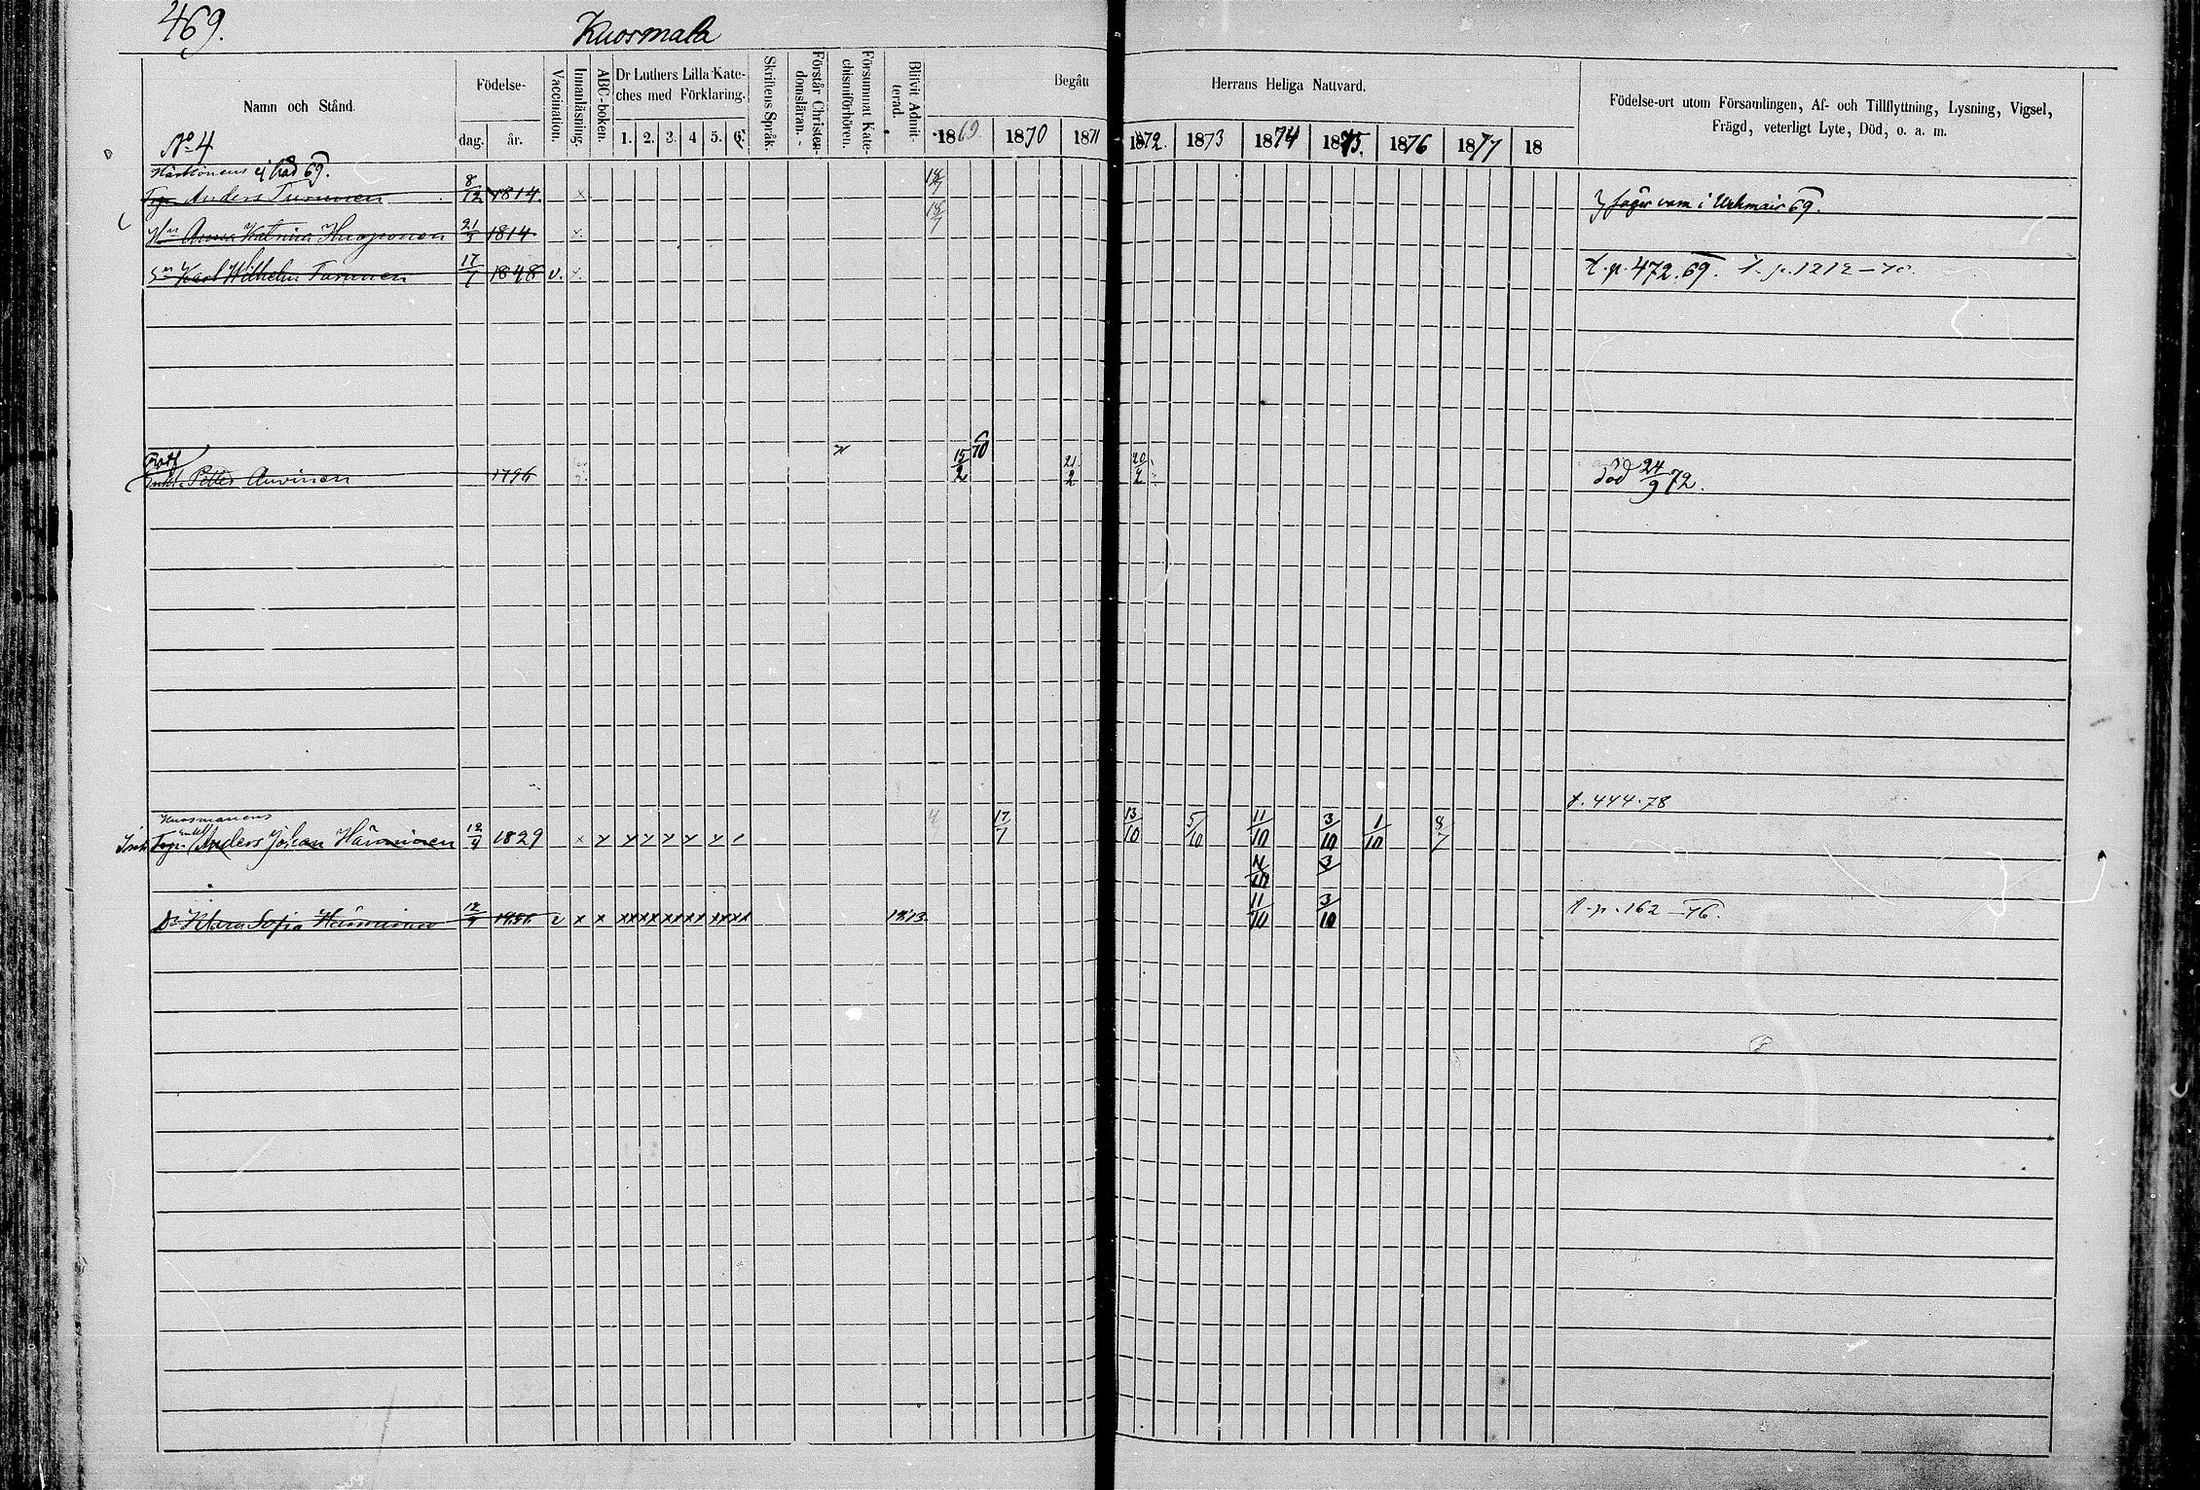 469.
Kuosmala
Namn och Stånd.
Födelse-
dag.
år.
Vaccination.
Innanläsning.
ABC-boken.
Dr Luthers Lilla Kate-
ches med Förklaring.
1. 2. 3. 4 5. 6.
Skriftens Språk
Förstår Christen-
domsläran.
Försummat Kate-
chismiförhören.
Blifvit Admit-
terad.
Begått
Herrans Heliga Nattvard.
1869. 1870 1871 1872. 1873 1874 1875. 1876 1877 18
Födelse-ort utom Församlingen, Af- och Tillflyttning, Lysning, Vigsel,
Frägd, veterligt Lyte, Död, o. a. m.
No 4
69.
Anders Turunen 8/12 1814. x 18/7
69.
Anna Katrina 21/3 1814 x 18/7
Karl Wilhelm Turunen 17/7 1848 v. x t.p. 472. 69. t.p. 1212-70.
Petter Auvinen 1796 15/2 70 21/2 20/2 död 24/9 72.
t. 444. 78
Anders Johan Hänninen 12/9 1829 x 17/7 13/10 5/10 11/10 3/10 1/10 8/7
Dr Klara Sofia Hänninen 12/9 v x x 1873. 11/10 3/10 t.p. 162-76.